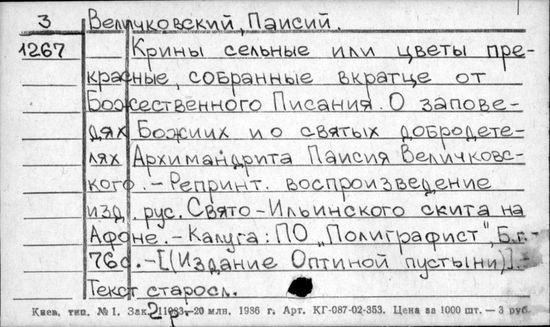 3 Величковский, Паисий.
1267 Крины сельные или цветы пре-
красные, собранные вкратце от
Божественного Писания. О запове-
дях Божиих и о святых добродете-
лях Архимандрита Паисия Величковс-
кого. – Репринт. воспроизведение
изд. рус. Свято-Ильинского скита на
Афоне. – Калуга: ПО „Полиграфист", Б.г.-
76с. – [(Издание Оптиной пустыни)]. –
Текст старосл.
2р.
Киев. тип. № 1. Зак. 11093–20 млн. 1986 г. Арт. КГ-087-02-353. Цена за 1000 шт. — 3 руб.